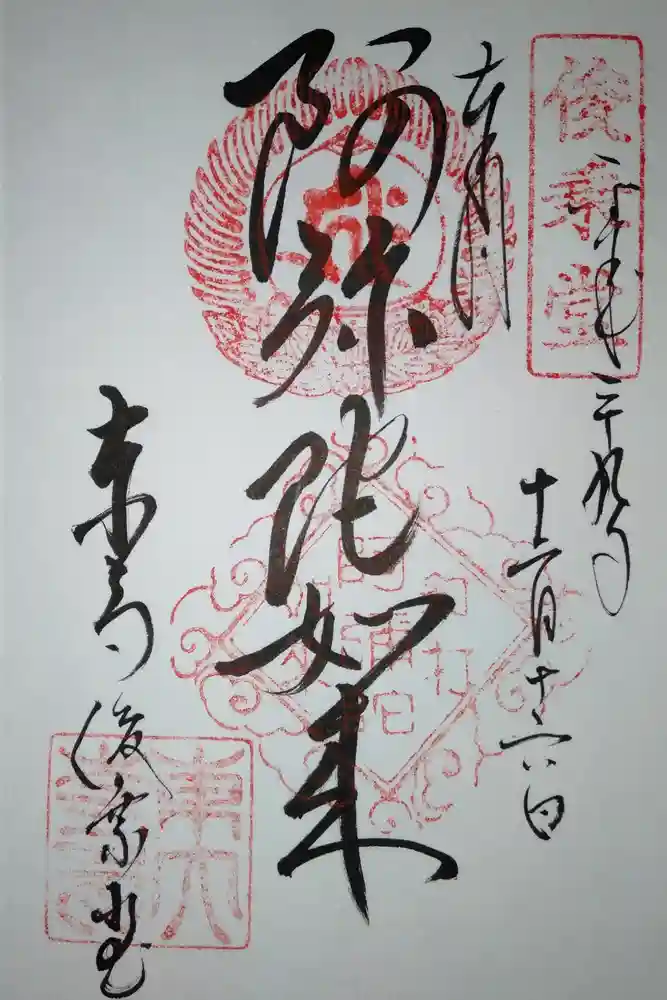 俊乗堂
平成二十九年
十一月十六日
奉拝
阿弥陀如来
東大寺 俊乗堂